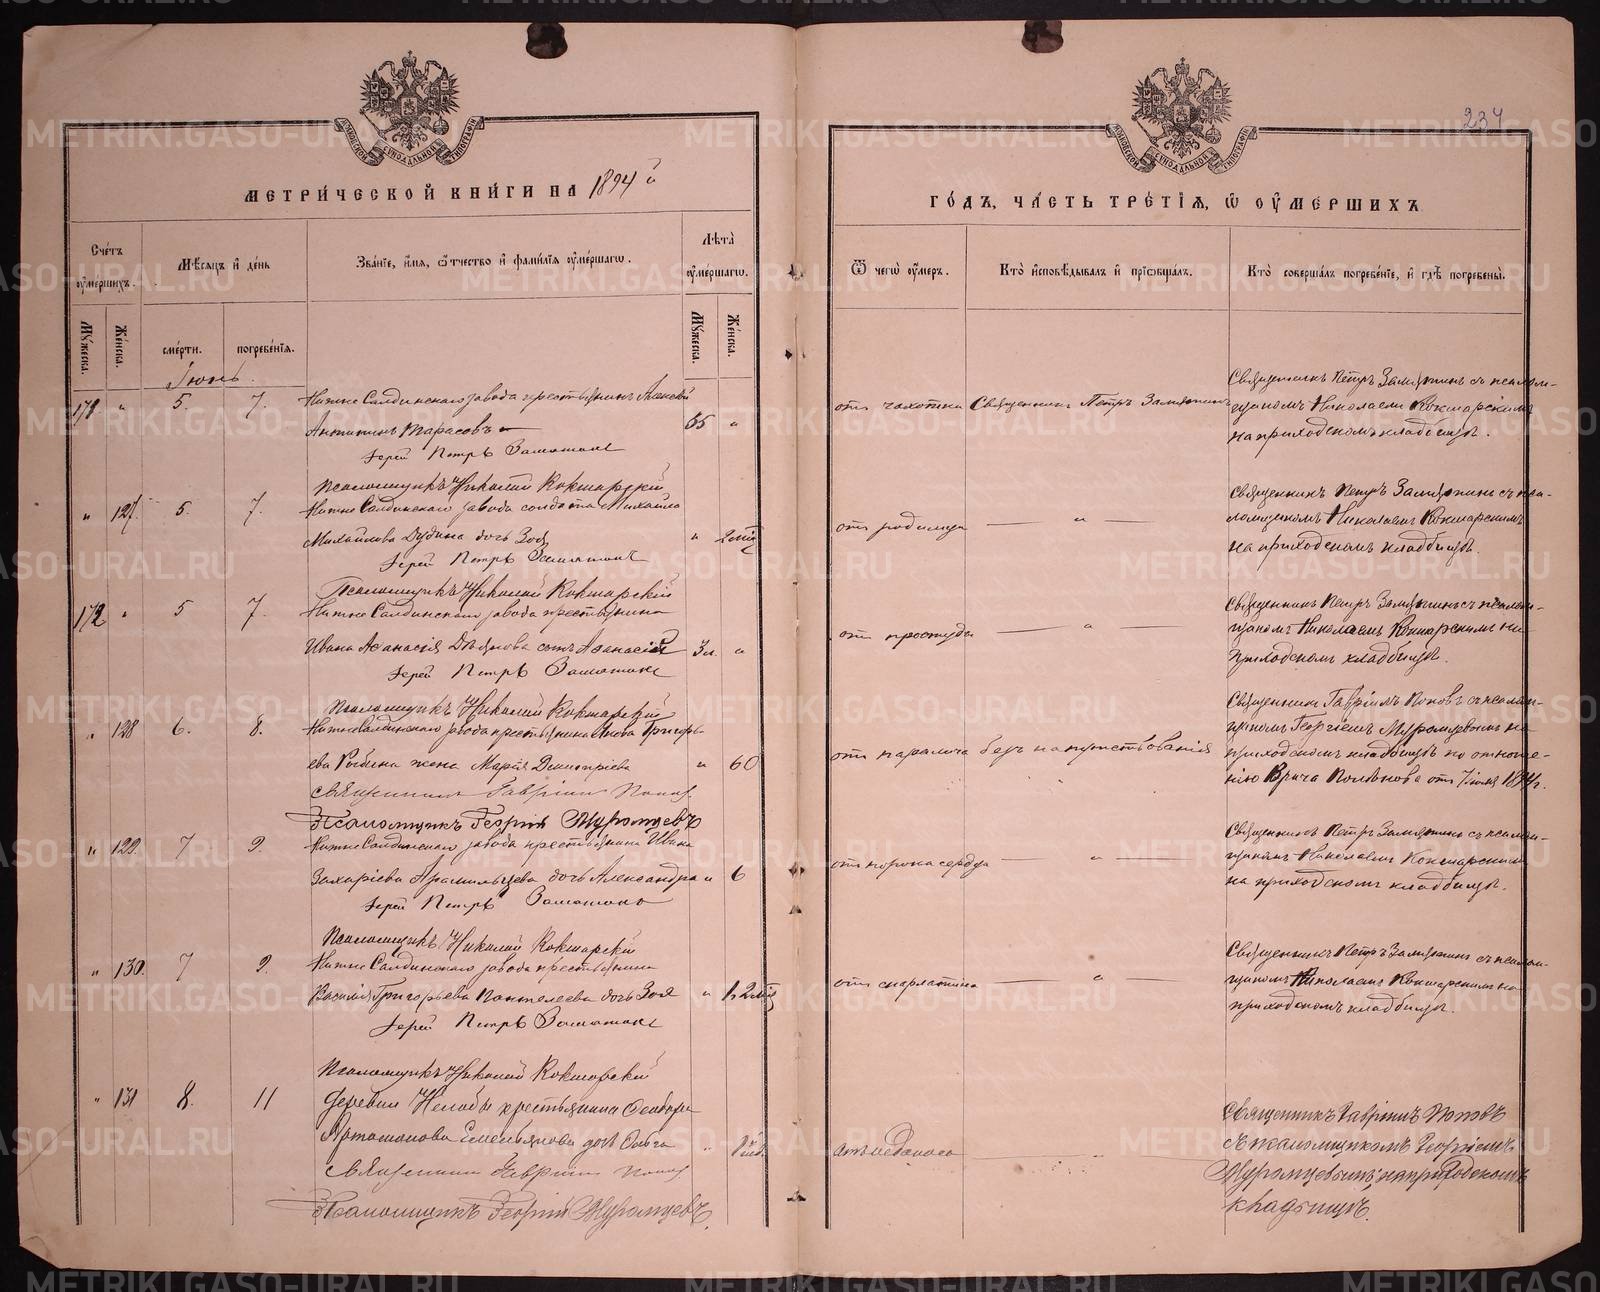 234
МОСКОВСКОЙ СѴНОДАЛЬНОЙ ТИПОГРАФІИ
МОСКОВСКОЙ СѴНОДАЛЬНОЙ ТИПОГРАФІИ
МЕТРИЧЕСКОЙ КНИГИ НА 1894 й
ГОДЪ, ЧАСТЬ ТРЕТІЯ, Ѿ ОУМЕРШИХЪ
Счетъ оумершихъ.
Мѣсяцъ и день
Званіе, имя, ѿтчество и фамилія оумершагѡ.
Лѣта оумершагѡ.
Ѿ чегѡ оумеръ.
Кто исповѣдывалъ и пріѡбщалъ.
Кто совершалъ погребеніе, и гдѣ погребены.
Мужеска.
Женска.
смерти.
погребенія.
Мужеска.
Женска.
Іюль.
171 " 5. 7.
Нижне Салдинскаго завода крестьянинъ Алексѣй
Антипинъ Тарасовъ
55 "
Іерей Петръ Замятинъ
Псаломщикъ Николай Кокшарскій
отъ чахотки
Священникъ Петръ Замятинъ
Священникъ Петръ Замятинъ съ псалом-
щикомъ Николаемъ Кокшарскимъ
на приходскомъ кладбищѣ.
" 127. 5. 7.
Нижне Салдинскаго завода солдата Михаила
Михайлова Дудина дочь Зоя
" 2 мѣс
Іерей Петръ Замятинъ
Псаломщикъ Николай Кокшарскій
отъ родимца
— " —
Священникъ Петръ Замятинъ съ пса-
ломщикомъ Николаемъ Кокшарскимъ
на приходскомъ кладбищѣ.
172 " 5 7.
Нижне Салдинскаго завода крестьянина
Ивана Аѳанасія сынъ Аѳанасій
3 м. "
Іерей Петръ Замятинъ
Псаломщикъ Николай Кокшарскій
отъ простуды
— " —
Священникъ Петръ Замятинъ съ псалом-
щикомъ Николаемъ Кокшарскимъ на
приходскомъ кладбищѣ.
" 128 6. 8.
Нижне Салдинскаго завода крестьянина Григорь-
ева жена Марія Димитріева
" 60
Священникъ Гавріилъ Поповъ
Псаломщикъ Георгій Муромцевъ
отъ паралича
безъ напутствованія
Священникъ Гавріилъ Поповъ съ псалом-
щикомъ Георгіемъ Муромцевымъ на
приходскомъ кладбищѣ по отноше-
нію Врача отъ 7 іюля 1894 г.
" 129. 7 9.
Нижне Салдинскаго завода крестьянина Ивана
Захаріева дочь Александра
" 6
Іерей Петръ Замятинъ
Псаломщикъ Николай Кокшарскій
отъ порока сердца
— " —
Священникъ Петръ Замятинъ съ псалом-
щикомъ Николаемъ Кокшарскимъ
на приходскомъ кладбищѣ.
" 130. 7 9.
Нижне Салдинскаго завода крестьянина
Василія Григорьева Пантелеева дочь Зоя
Іерей Петръ Замятинъ
Псаломщикъ Николай Кокшарскій
отъ скарлатины
— " —
Священникъ Петръ Замятинъ съ псалом-
щикомъ Николаемъ Кокшарскимъ на
приходскомъ кладбищѣ.
" 131 8. 11
Деревни Нелобы крестьянина
Артамонова Емельянова дочь Ольга
Священникъ Гавріилъ Поповъ
Псаломщикъ Георгій Муромцевъ.
— " —
Священникъ Гавріилъ Поповъ
съ псаломщикомъ Георгіемъ
Муромцевымъ, на приходскомъ
кладбищѣ.
METRIKI.GASO-URAL.RU